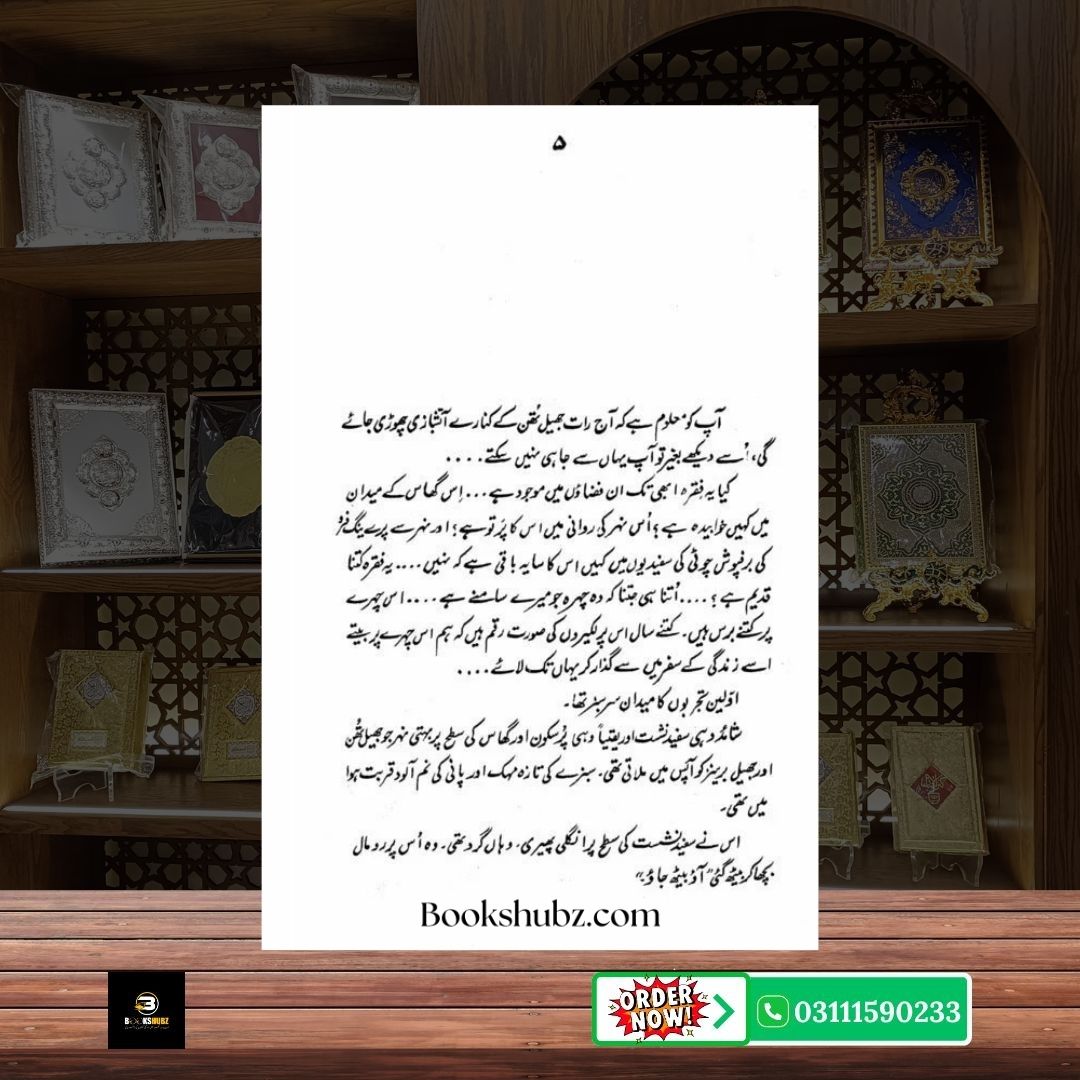 ۵
آپ کو معلوم ہے کہ آج رات جھیل تُھن کے کنارے آتشبازی چھوڑی جائے
گی، اُسے دیکھے بغیر تو آپ یہاں سے جا ہی نہیں سکتے....
کیا یہ فقرہ ابھی تک ان فضاؤں میں موجود ہے... اِس گھاس کے میدان
میں کہیں خوابیدہ ہے؟ اُس نہر کی روانی میں اس کا پَر تو ہے؟ اور نہر سے پرے ینگ فرؤ
کی برفپوش چوٹی کی سفیدیوں میں کہیں اس کا سایہ باقی ہے کہ نہیں.... یہ فقرہ کتنا
قدیم ہے؟.... اُتنا ہی جتنا کہ وہ چہرہ جو میرے سامنے ہے.... اس چہرے
پر کتنے برس ہیں۔ کتنے سال اس پر لکیروں کی صورت رقم ہیں کہ ہم اس چہرے پر بیتے
اسے زندگی کے سفر میں سے گذار کر یہاں تک لائے....
اوّلین تجربوں کا میدان سرسبز تھا۔
شائد وہی سفید نشت اور یقیناً وہی پُرسکون اور گھاس کی سطح پر بہتی نہر جو جھیل تُھن
اور جھیل برینز کو آپس میں ملاتی تھی۔ سبزے کی تازہ مہک اور پانی کی نم آلود قربت ہوا
میں تھی۔
اس نے سفید نشست کی سطح پر انگلی پھیری۔ وہاں گرد تھی۔ وہ اُس پر رومال
بچھا کر بیٹھ گئی "آؤ بیٹھ جاؤ۔"
Bookshubz.com
BOOKSHUBZ
ORDER NOW!
03111590233